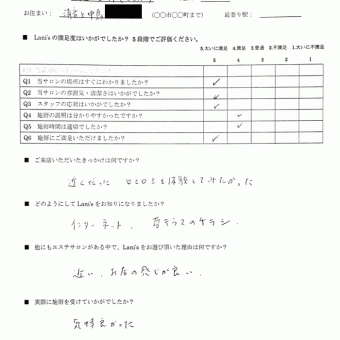 お住まい： （○○市○○町まで） 最寄り駅：
■ Lani'sの満足度はいかがでしたか？ 5段階でご評価ください。
5.大いに満足 4.満足 3.普通 2.不満足 1.大いに不満足
5 4 3 2 1
Q1 当サロンの場所はすぐにわかりましたか？ ✓
Q2 当サロンの雰囲気・清潔さはいかがでしたか？ ✓
Q3 スタッフの応対はいかがでしたか？ ✓
Q4 施術の説明は分かりやすかったですか？ ✓
Q5 施術時間は適切でしたか？ ✓
Q6 施術にご満足いただけましたか？ ✓
■ ご来店いただいたきっかけは何ですか？
近くだった 口コミを体験してみたかった
■ どのようにしてLani'sをお知りになりましたか？
インターネット、 のチラシ
■ 他にもエステサロンがある中で、Lani'sをお選び頂いた理由は何ですか？
近い、お店の感じが良い、
■ 実際に施術を受けていかがでしたか？
気持良かった